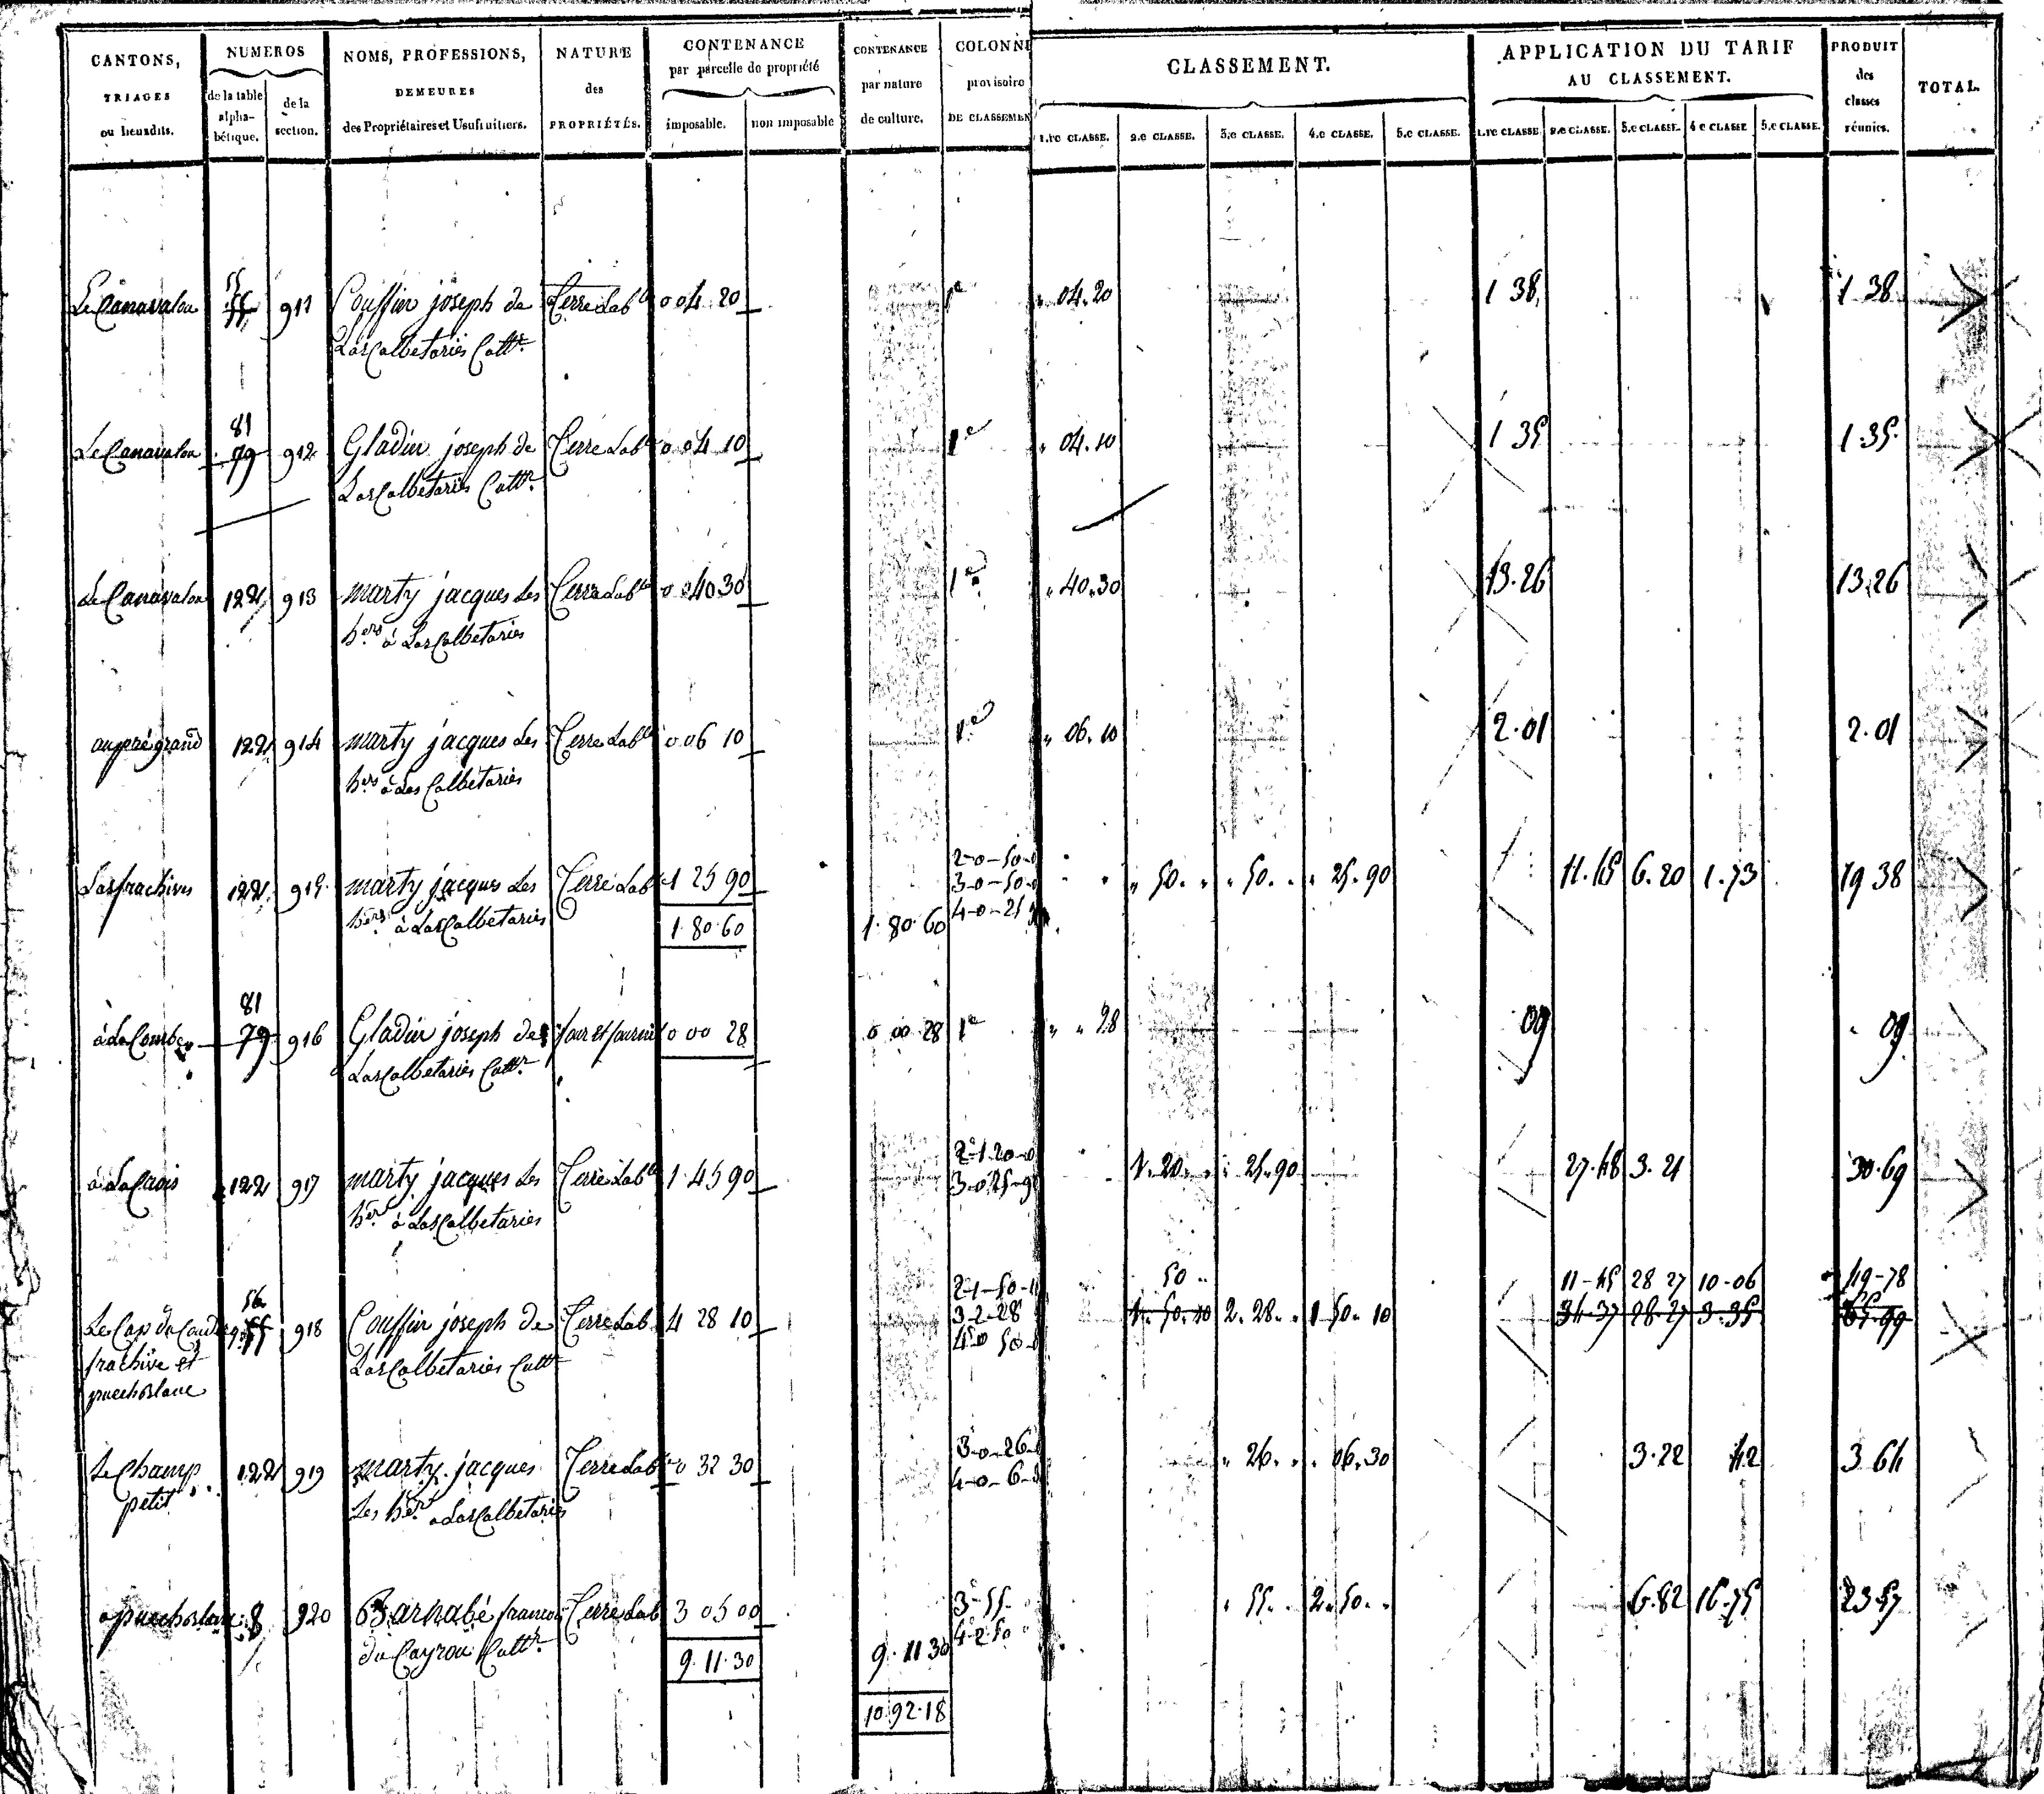 CANTONS, TRIAGES ou lieuxdits. NUMEROS de la table alpha-bétique. de la section. NOMS, PROFESSIONS, DEMEURES des Propriétaires et Usufruitiers. NATURE des PROPRIÉTÉS. CONTENANCE par parcelle de propriété imposable. non imposable CONTENANCE par nature de culture. COLONNE provisoire DE CLASSEMEN CLASSEMENT. 1.re CLASSE. 2.e CLASSE. 3.e CLASSE. 4.e CLASSE. 5.e CLASSE. APPLICATION DU TARIF AU CLASSEMENT. 1.re CLASSE. 2.e CLASSE. 3.e CLASSE. 4.e CLASSE 5.e CLASSE. PRODUIT des classes réunies. TOTAL.
55
Le Canavalou 911 Couffin joseph de Terre Lab.le 0 04 20 1e 04.20 1 38 1 38
Las Calbetariés Cultr.
81
Le Canavalou 79 912 Gladin joseph de Terre Lab.le 0 04 10 1e 04.10 1 35 1.35
Las Calbetariés Cultr.
Le Canavalou 122 913 marty jacques Les Terre Lab.le 0 40 30 1e 40.30 13.26 13.26
hers à Las Calbetariés
au pré grand 122 914 marty jacques Les Terre Lab.le 0 06 10 1e 06.10 2.01 2.01
hers à Las Calbetariés
2-0-50-0
Las frachives 122 915 marty jacques Les Terre Lab.le 1 25 90 3-0-50-0 50. 50. 25.90 11.45 6.20 1.73 19 38
hers à Las Calbetariés 1.80.60 1.80.60 4-0-25
81
à La Combe 79 916 Gladin joseph de four et fournil 0 00 28 0 00 28 1e 28 09 09
Las Calbetariés Cultr.
2-1.20-0
à La Crais 122 917 marty jacques Les Terre Lab.le 1.45 90 3-0.25-9 1.20. 25.90 27.48 3.21 30.69
hers à Las Calbetariés
56 2-1-50-1 50 11-45 28 27 10-06 49-78
Le Cap du 918 Couffin joseph de Terre Lab 4 28 10 3 2-28 1.50.10 2.28. 1 50.10 34-37 28.27 3-35 65.99
frachive et Las Calbetariés Cultr 4 0 50
puechoslane
3-0-26
Le Champ 122 919 marty jacques Terre Lab.le 0 32 30 4-0-6 26. 06.30 3.22 42 3 64
petit Les hers à Las Calbetariés
à puechoslane 8 920 Barnabé francois Terre Lab 3 05 00 3-55 55. 2.50. 6.82 16.75 23 57
du Cayrou Cultr. 9.11.30 9.11 30 4-2 50
10.92.18